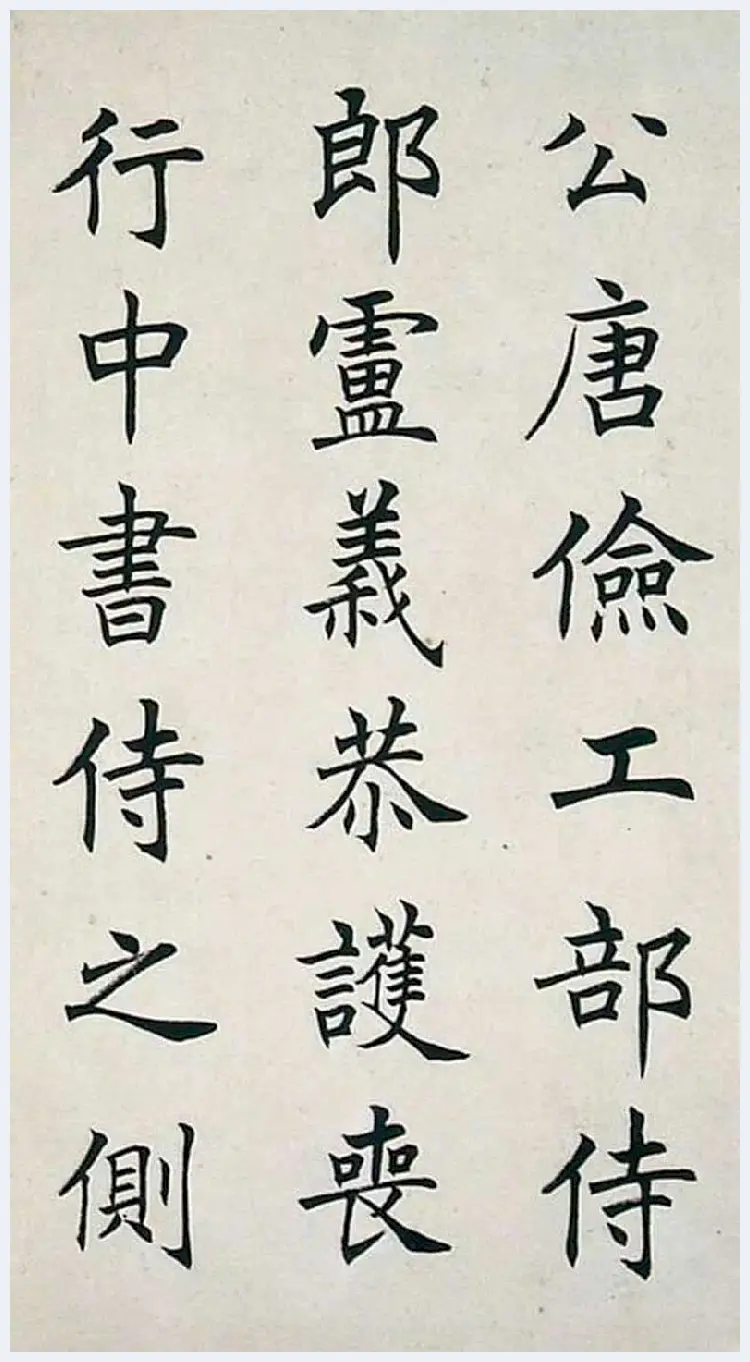 公唐儉工部侍
郎盧義恭護喪
行中書侍之側